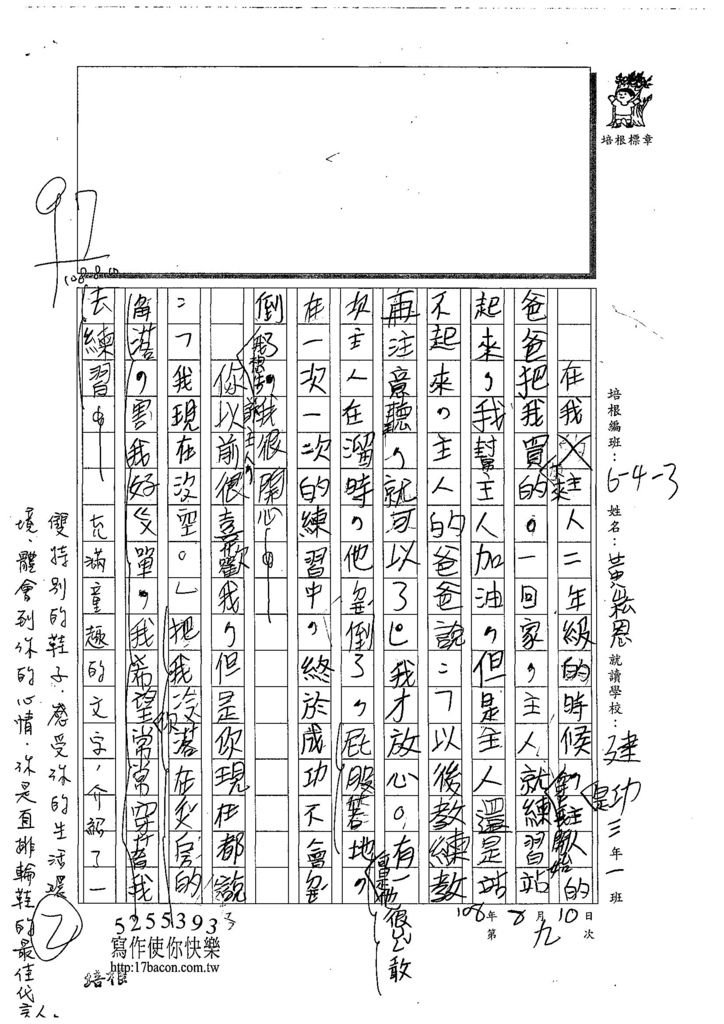 培根標章
97
108.8.10
培根編班：6-4-3 姓名：黃崧恩 就讀學校：建功 三年一班
108年8月10日
第九次
在我主人二年級的時候
爸爸把我買的。一回家，主人就練習站
起來，我幫主人加油，但是主人還是站
不起來，主人的爸爸說：「以後教練教
再注意聽，就可以了」我才放心。有一
次主人在溜時，他跌倒了，屁股著地，
在一次一次的練習中，終於成功不會跌
倒了。我很開心。
你以前很喜歡我，但是你現在都說
：「我現在沒空。」把我冷落在
角落，害我好孤單，我希望常常穿著我
去練習。
勇敢
充滿童趣的文字，介紹了一
雙特別的鞋子，感受你的生活環
境，體會到你的心情，你是直排輪鞋的最佳代言人。
2
5255393
寫作使你快樂
http:17bacon.com.tw
培根